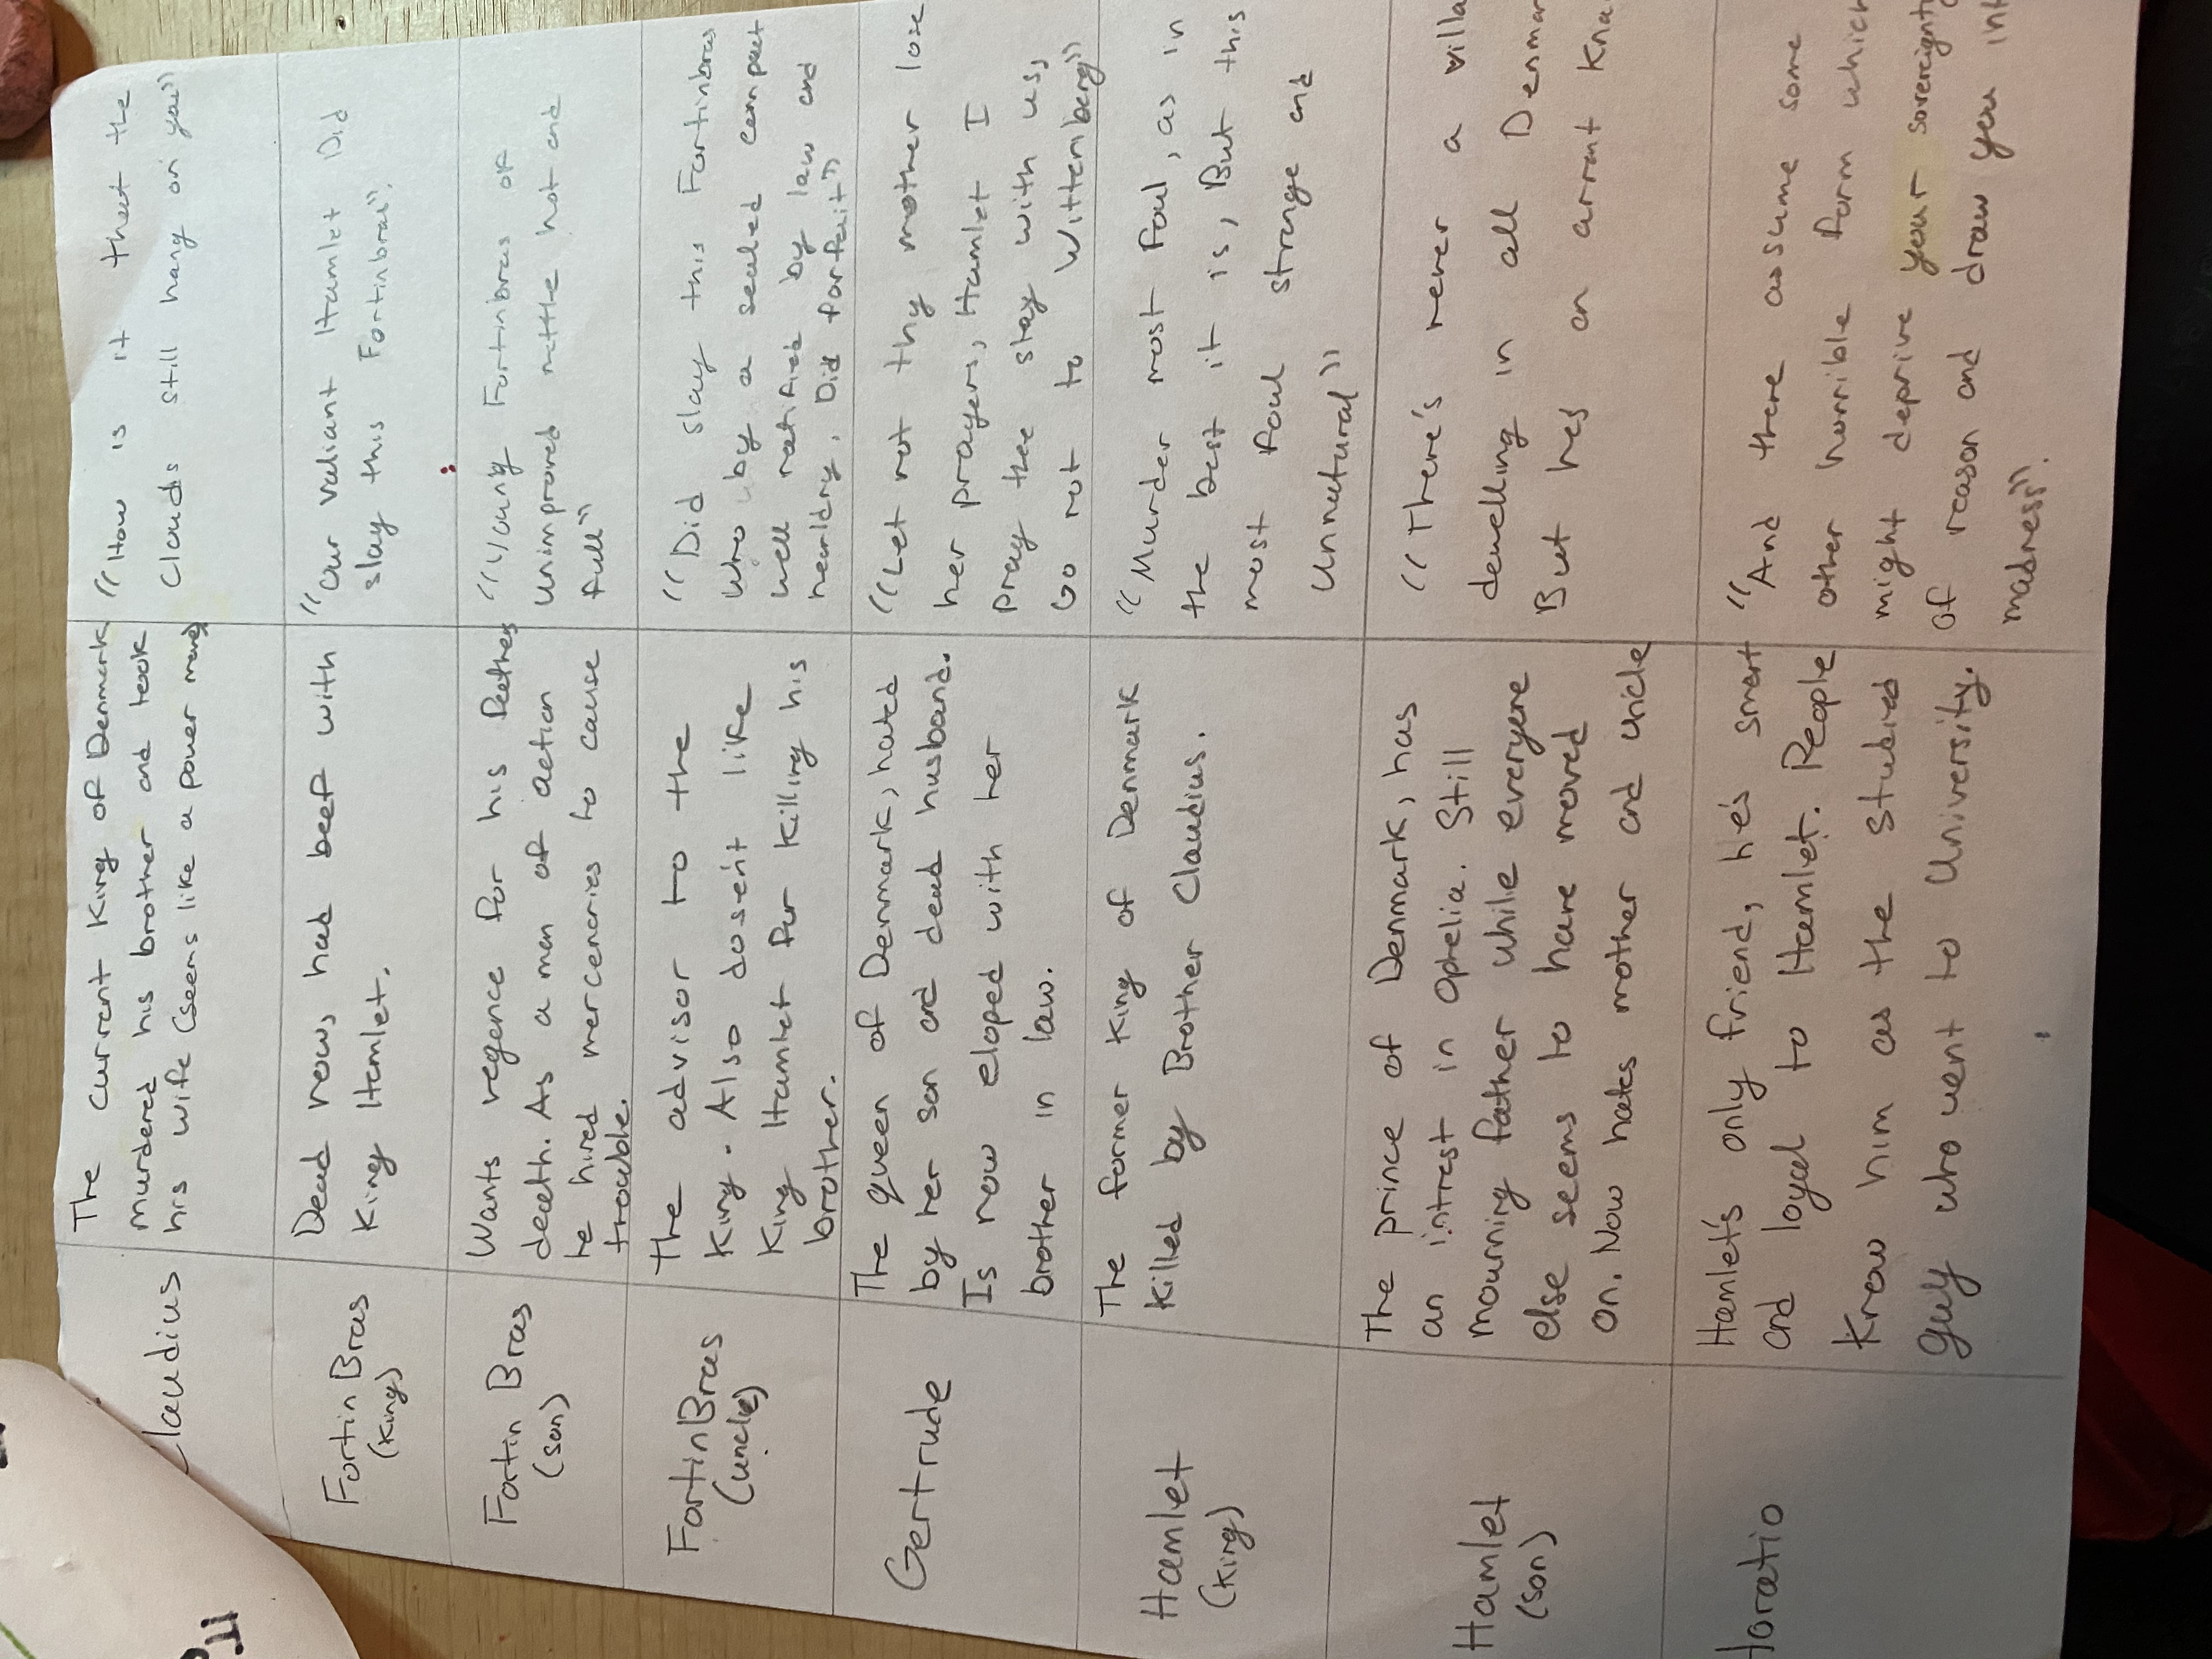 Claudius
The current King of Denmark
murdered his brother and took
his wife (seems like a power move)
"How is it that the
Clouds still hang on you"
Fortin Bras
(King)
Dead now, had beef with
King Hamlet.
"Our valiant Hamlet Did
slay this Fortinbras".
Fortin Bras
(son)
Wants vegence for his fathers
death. As a man of action
he hired mercenaries to cause
trouble.
"Young Fortinbras of
unimproved mettle hot and
full"
FortinBras
(uncle)
The advisor to the
King. Also dosen't like
King Hamlet for killing his
brother.
"Did slay this Fortinbras
who by a sealed compact
well ratified by law and
hearldry, Did forfait"
Gertrude
The queen of Denmark, hated
by her son and dead husband.
Is now eloped with her
brother in law.
"Let not thy mother lose
her prayers, Hamlet I
pray thee stay with us,
Go not to Wittemberg"
Hamlet
(King)
The former King of Denmark
killed by Brother Claudius.
"Murder most foul, as in
the best it is, But this
most foul strange and
Unnatural"
Hamlet
(son)
The prince of Denmark, has
an intrest in Ophelia. Still
mourning father while everyone
else seems to have moved
on. Now hates mother and uncle
"There's never a villa
dewelling in all Denmar
But hes an arrant Kna
Horatio
Hamlet's only friend, he's smart
and loyal to Hamlet. People
know him as the studied
guy who went to University.
"And there assume some
other horrible form which
might deprive your sovereignty
of reason and draw you int
madness".